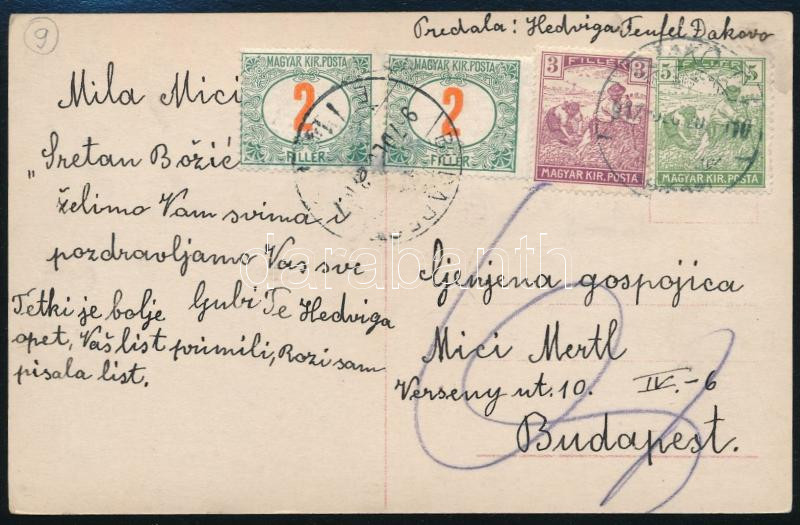 9
Predala: Hedviga Teufel Đakovo
MAGYAR KIR. POSTA
2
FILLÉR
MAGYAR KIR. POSTA
2
FILLÉR
3 FILLÉR 3
MAGYAR KIR. POSTA
5 FILLÉR 5
MAGYAR KIR. POSTA
Mila Mici
„Sretan Božić
želimo Vam svima i
pozdravljamo Vas svi
ljubi Te Hedviga
Tetki je bolje
opet, Vaš list primili, Rozi sam
pisala list.
darabanth
Cjenjena gospojica
Mici Mertl
Verseny ut. 10. IV.-6
Budapest.